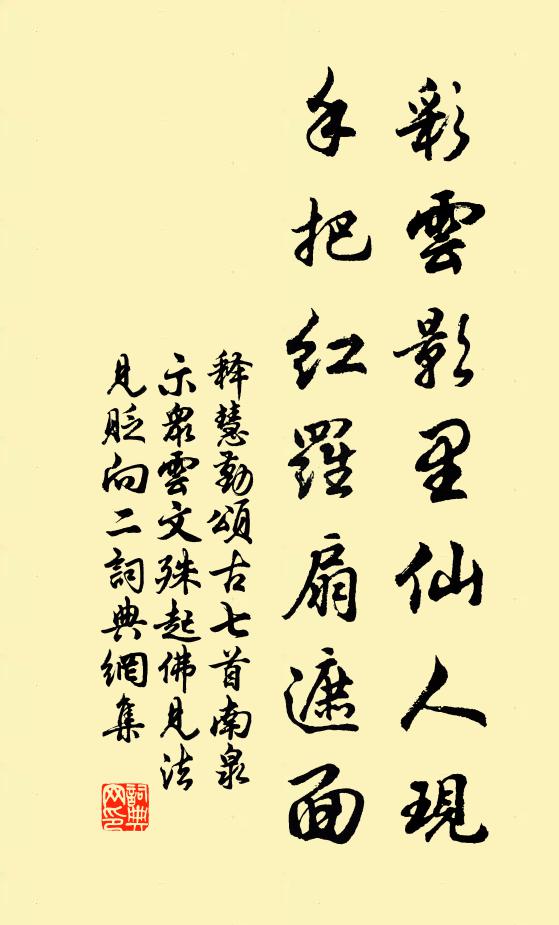 彩雲影里仙人現
手把紅羅扇遮面
释慧勤頌古七首南泉
示衆雲文殊起佛見法
見貶向二詞典網集
詞典网印